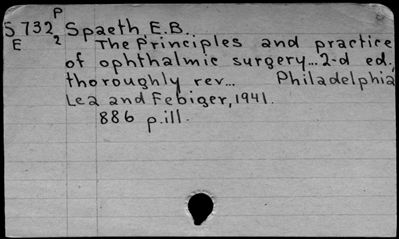 P
S 732 Spaeth E.B..
E 2 The Principles and practice
of ophthalmic surgery...2-d ed.
thoroughly rev... Philadelphia
Lea and Febiger, 1941.
886 p.ill.